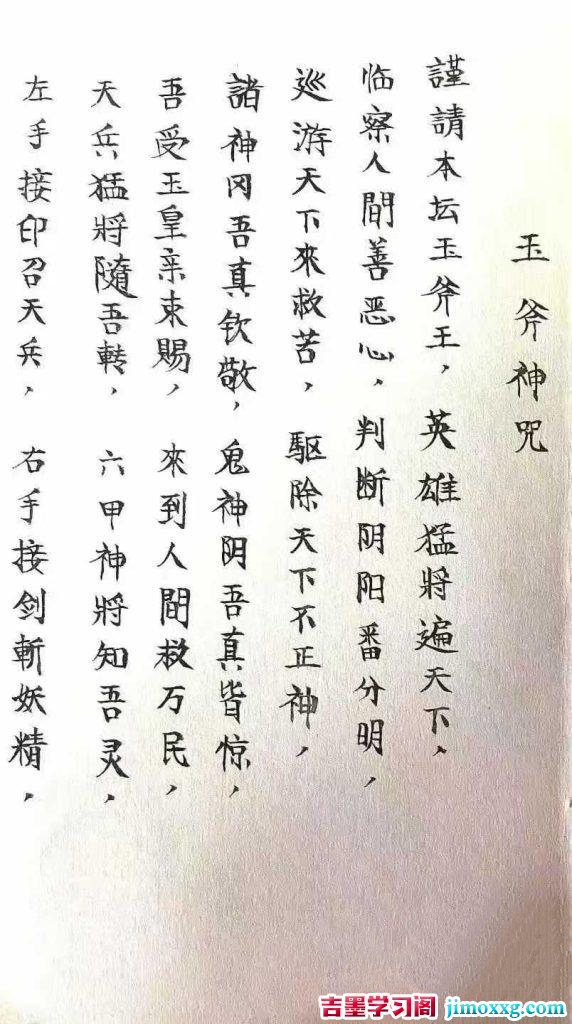 玉斧神咒
謹請本坛玉斧王，英雄猛將遍天下，
临察人間善恶心，判断阴阳番分明，
巡游天下來救苦，驱除天下不正神，
諸神冈吾真钦敬，鬼神阴吾真皆惊，
吾受玉皇亲束賜，來到人間救万民，
天兵猛將隨吾轉，六甲神將知吾灵，
左手接印召天兵，右手接剑斬妖精，
吉墨学习阁 jimoxxg.com